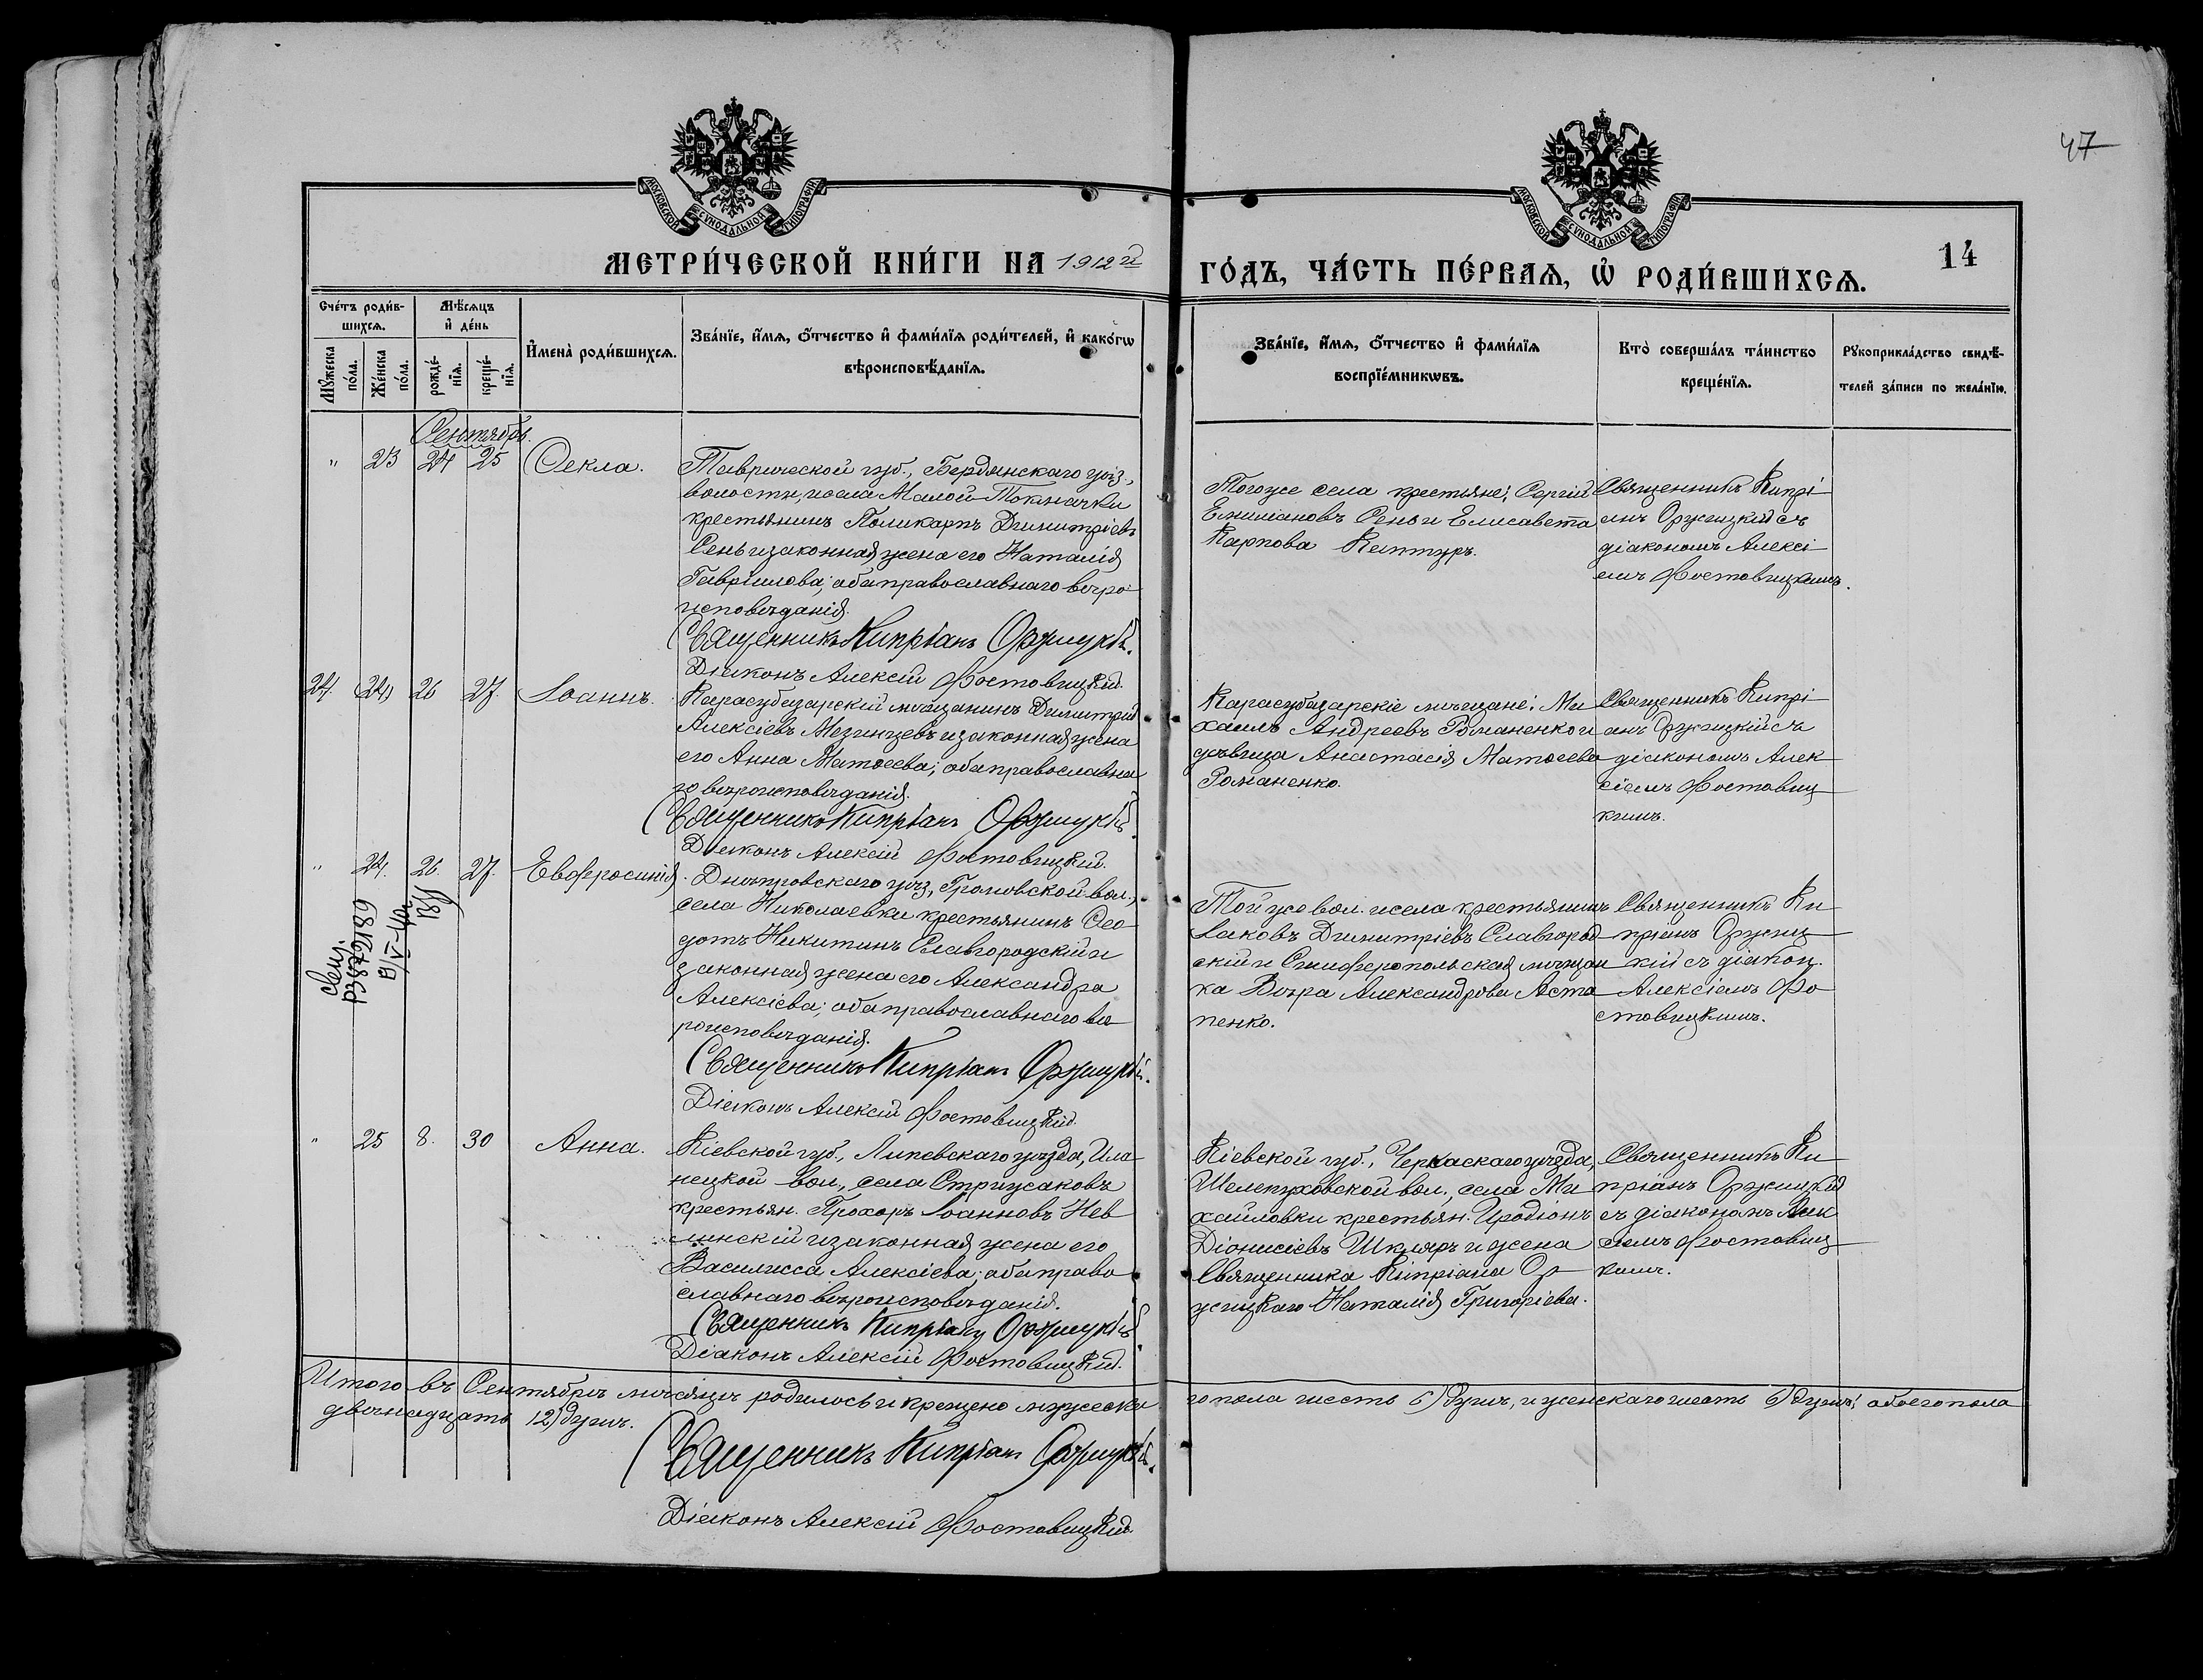 47
МОСКОВСКОЙ СѴНОДАЛЬНОЙ ТИПОГРАФІИ
МОСКОВСКОЙ СѴНОДАЛЬНОЙ ТИПОГРАФІИ
МЕТРИ́ЧЕСКОЙ КНИ́ГИ НА 1912й
ГО́ДЪ, ЧА́СТЬ ПЕ́РВАѦ, Ѡ҆ РОДИ́ВШИХСѦ.
14
Сче́тъ роди́в-
шихсѧ.
Мѣ́сѧцъ
и҆ де́нь
Мꙋ́жеска
по́ла.
Же́нска
по́ла.
рожде́-
нїѧ.
креще́-
нїѧ.
И҆мена̀ роди́вшихсѧ.
Зва́нїе, и҆́мѧ, ѻ҆́тчество и҆ фами́лїѧ роди́телей, и҆ како́гѡ
вѣроисповѣ́данїѧ.
Зва́нїе, и҆́мѧ, ѻ҆́тчество и҆ фами́лїѧ
воспрїе́мникѡвъ.
Кто̀ соверша́лъ та́инство
креще́нїѧ.
Рꙋкоприкла́дство свидѣ́-
телей за́писи по жела́нїю.
Сентябрь.
" 23 24 25 Ѳекла.
Таврической губ., Бердянскаго уѣз.,
волости, и села Малой Токмачки
крестьянинъ Поликарпъ Димитріевъ
Сень и законная жена его Наталія
Гавріилова; оба православнаго вѣро-
исповѣданія.
Священникъ Кипріанъ Оржицкій.
Діаконъ Алексій Фостовицкій.
Тогоже села крестьяне: Сергій
Емиліановъ Сень и Елисавета
Карпова Каптуръ.
Священникъ Кипрі-
анъ Оржицкій съ
діакономъ Алексі-
емъ Фостовицкимъ.
24. 24) 26 27. Іоаннъ.
Карасубазарскій мѣщанинъ Димитрій
Алексіевъ Мезинцевъ и законная жена
его Анна Матѳеева; оба православна-
го вѣроисповѣданія.
Священникъ Кипріанъ Оржицкій.
Діаконъ Алексій Фостовицкій.
Карасубазарскіе мѣщане: Ми-
хаилъ Андреевъ Романенко и
дѣвица Анастасія Матѳеева
Романенко.
Священникъ Кипрі-
анъ Оржицкій съ
діакономъ Алек-
сіемъ Фостовиц-
кимъ.
" 24. 26. 27. Евфросинія.
Днѣпровскаго уѣз., Громовской вол.,
села Николаевки крестьянинъ Ѳео-
дотъ Никитинъ Славгородскій и
законная жена его Александра
Алексіева; оба православнаго вѣ-
роисповѣданія.
Священникъ Кипріанъ Оржицкій.
Діаконъ Алексій Фостовицкій.
Той же вол. и села крестьянинъ
Іаковъ Димитріевъ Славгород-
скій и Симферопольская мѣщан-
ка Вѣра Александрова Аста-
пенко.
Священникъ Ки-
пріанъ Оржиц-
кій съ діакон.
Алексіемъ Фо-
стовицкимъ.
" 25 8. 30 Анна.
Кіевской губ., Липевскаго уѣзда, Ила-
нецкой вол., села Стрижаковъ
крестьян. Прохоръ Іоанновъ Нев-
линскій и законная жена его
Василисса Алексіева; оба право-
славнаго вѣроисповѣданія.
Священникъ Кипріанъ Оржицкій.
Діаконъ Алексій Фостовицкій.
Кіевской губ., Черкаскаго уѣзда,
Шелепуховской вол., села Ми-
хайловки крестьян. Иродіонъ
Діонисіевъ Шкляръ и жена
Священника Кипріана Ор-
жицкаго Наталія Григоріева.
Священникъ Ки-
пріанъ Оржицкій
съ діакономъ Алек-
сіемъ Фостовиц-
кимъ.
Итого въ Сентябрѣ мѣсяцѣ родилось и крещено мужеска-
го пола шесть 6) душъ, и женскаго шесть 6) душъ; обоего пола
двѣнадцать 12) душъ.
Священникъ Кипріанъ Оржицкій.
Діаконъ Алексій Фостовицкій.